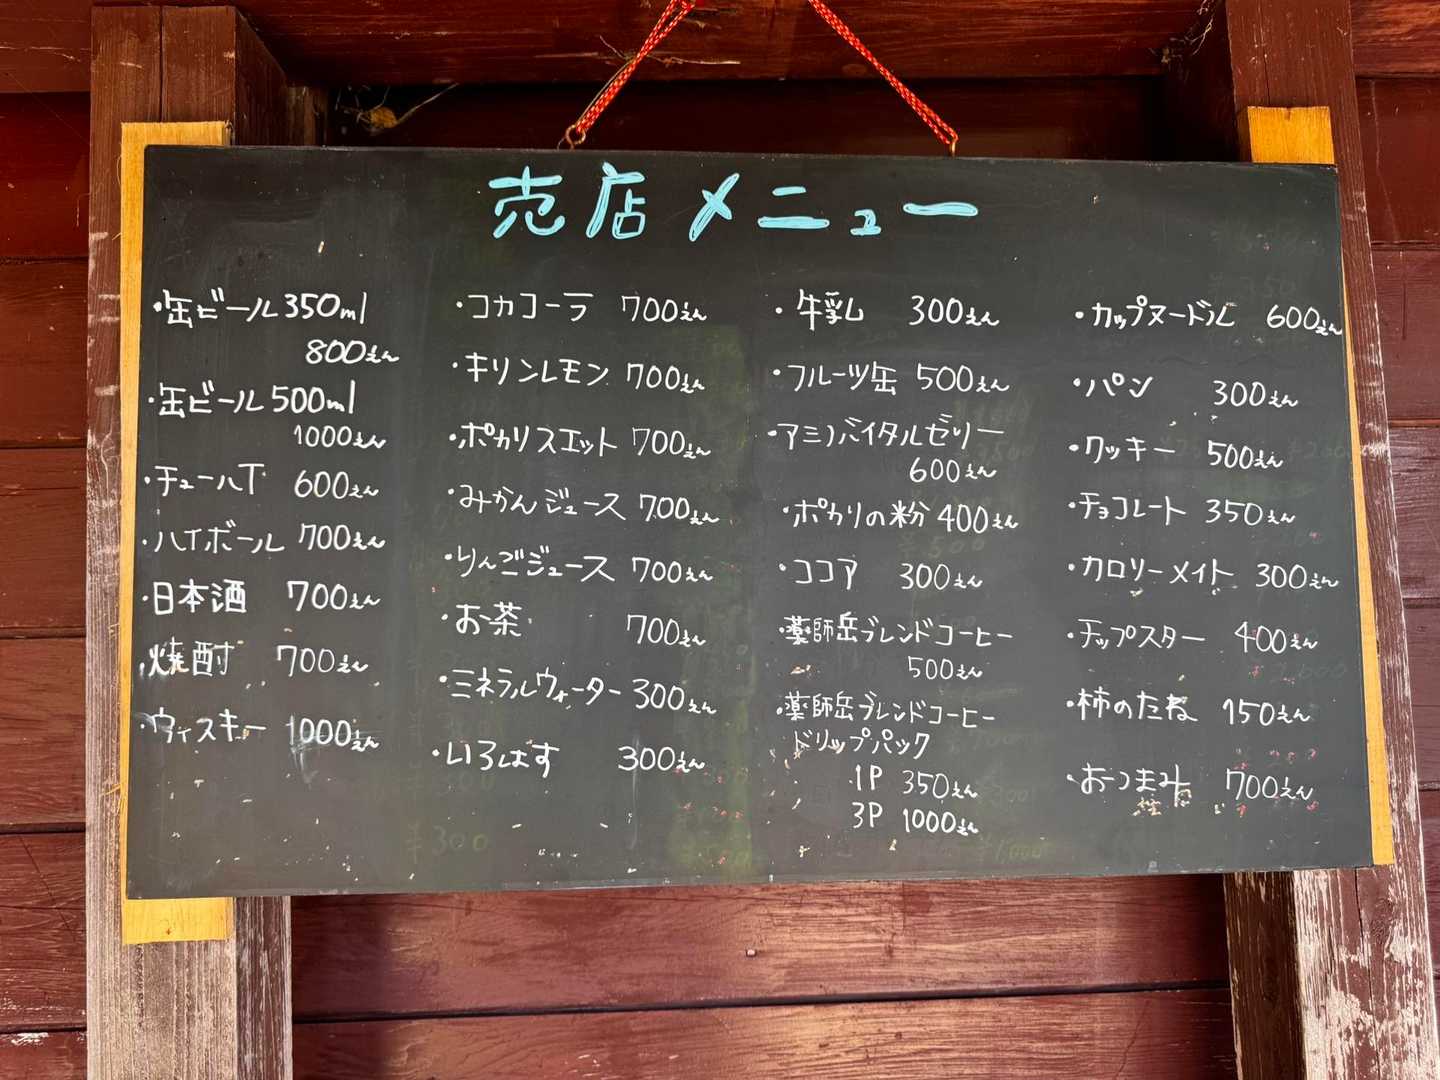 売店メニュー
・缶ビール350ml
800えん
・缶ビール500ml
1000えん
・チューハイ 600えん
・ハイボール 700えん
・日本酒 700えん
・焼酎 700えん
・ウィスキー 1000えん
・コカコーラ 700えん
・キリンレモン 700えん
・ポカリスエット 700えん
・みかんジュース 700えん
・りんごジュース 700えん
・お茶 700えん
・ミネラルウォーター 300えん
・いろはす 300えん
・牛乳 300えん
・フルーツ缶 500えん
・アミノバイタルゼリー
600えん
・ポカリの粉 400えん
・ココア 300えん
・薬師岳ブレンドコーヒー
500えん
・薬師岳ブレンドコーヒー
ドリップパック
1P 350えん
3P 1000えん
・カップヌードル 600えん
・パン 300えん
・クッキー 500えん
・チョコレート 350えん
・カロリーメイト 300えん
・チップスター 400えん
・柿のたね 150えん
・おつまみ 700えん